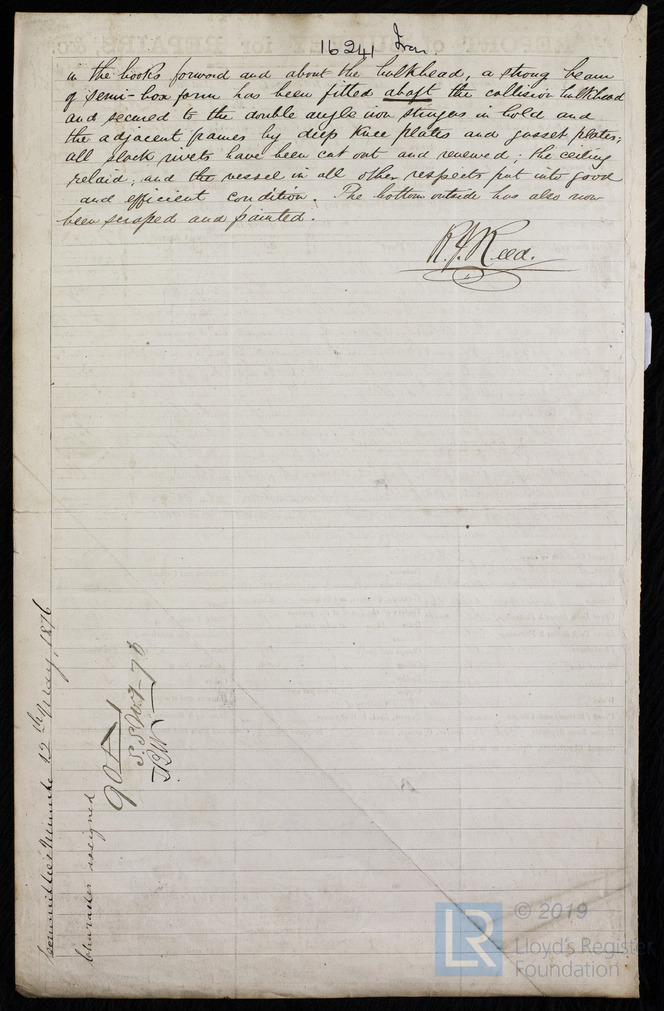 16241 Iron
in the hooks forward and about the bulkhead, a strong beam
of semi-box form has been fitted abaft the collision bulkhead
and secured to the double angle iron stringers in hold and
the adjacent frames by deep knee plates and gusset plates;
all slack rivets have been cut out and renewed; the ceiling
relaid; and the vessel in all other respects put into good
and efficient condition. The bottom outside has also now
been scraped and painted.
R. J. Reed.
Committee's Minute 12th May, 1876
Character assigned
90 A 1
© 2019
LR
Lloyd's Register
Foundation